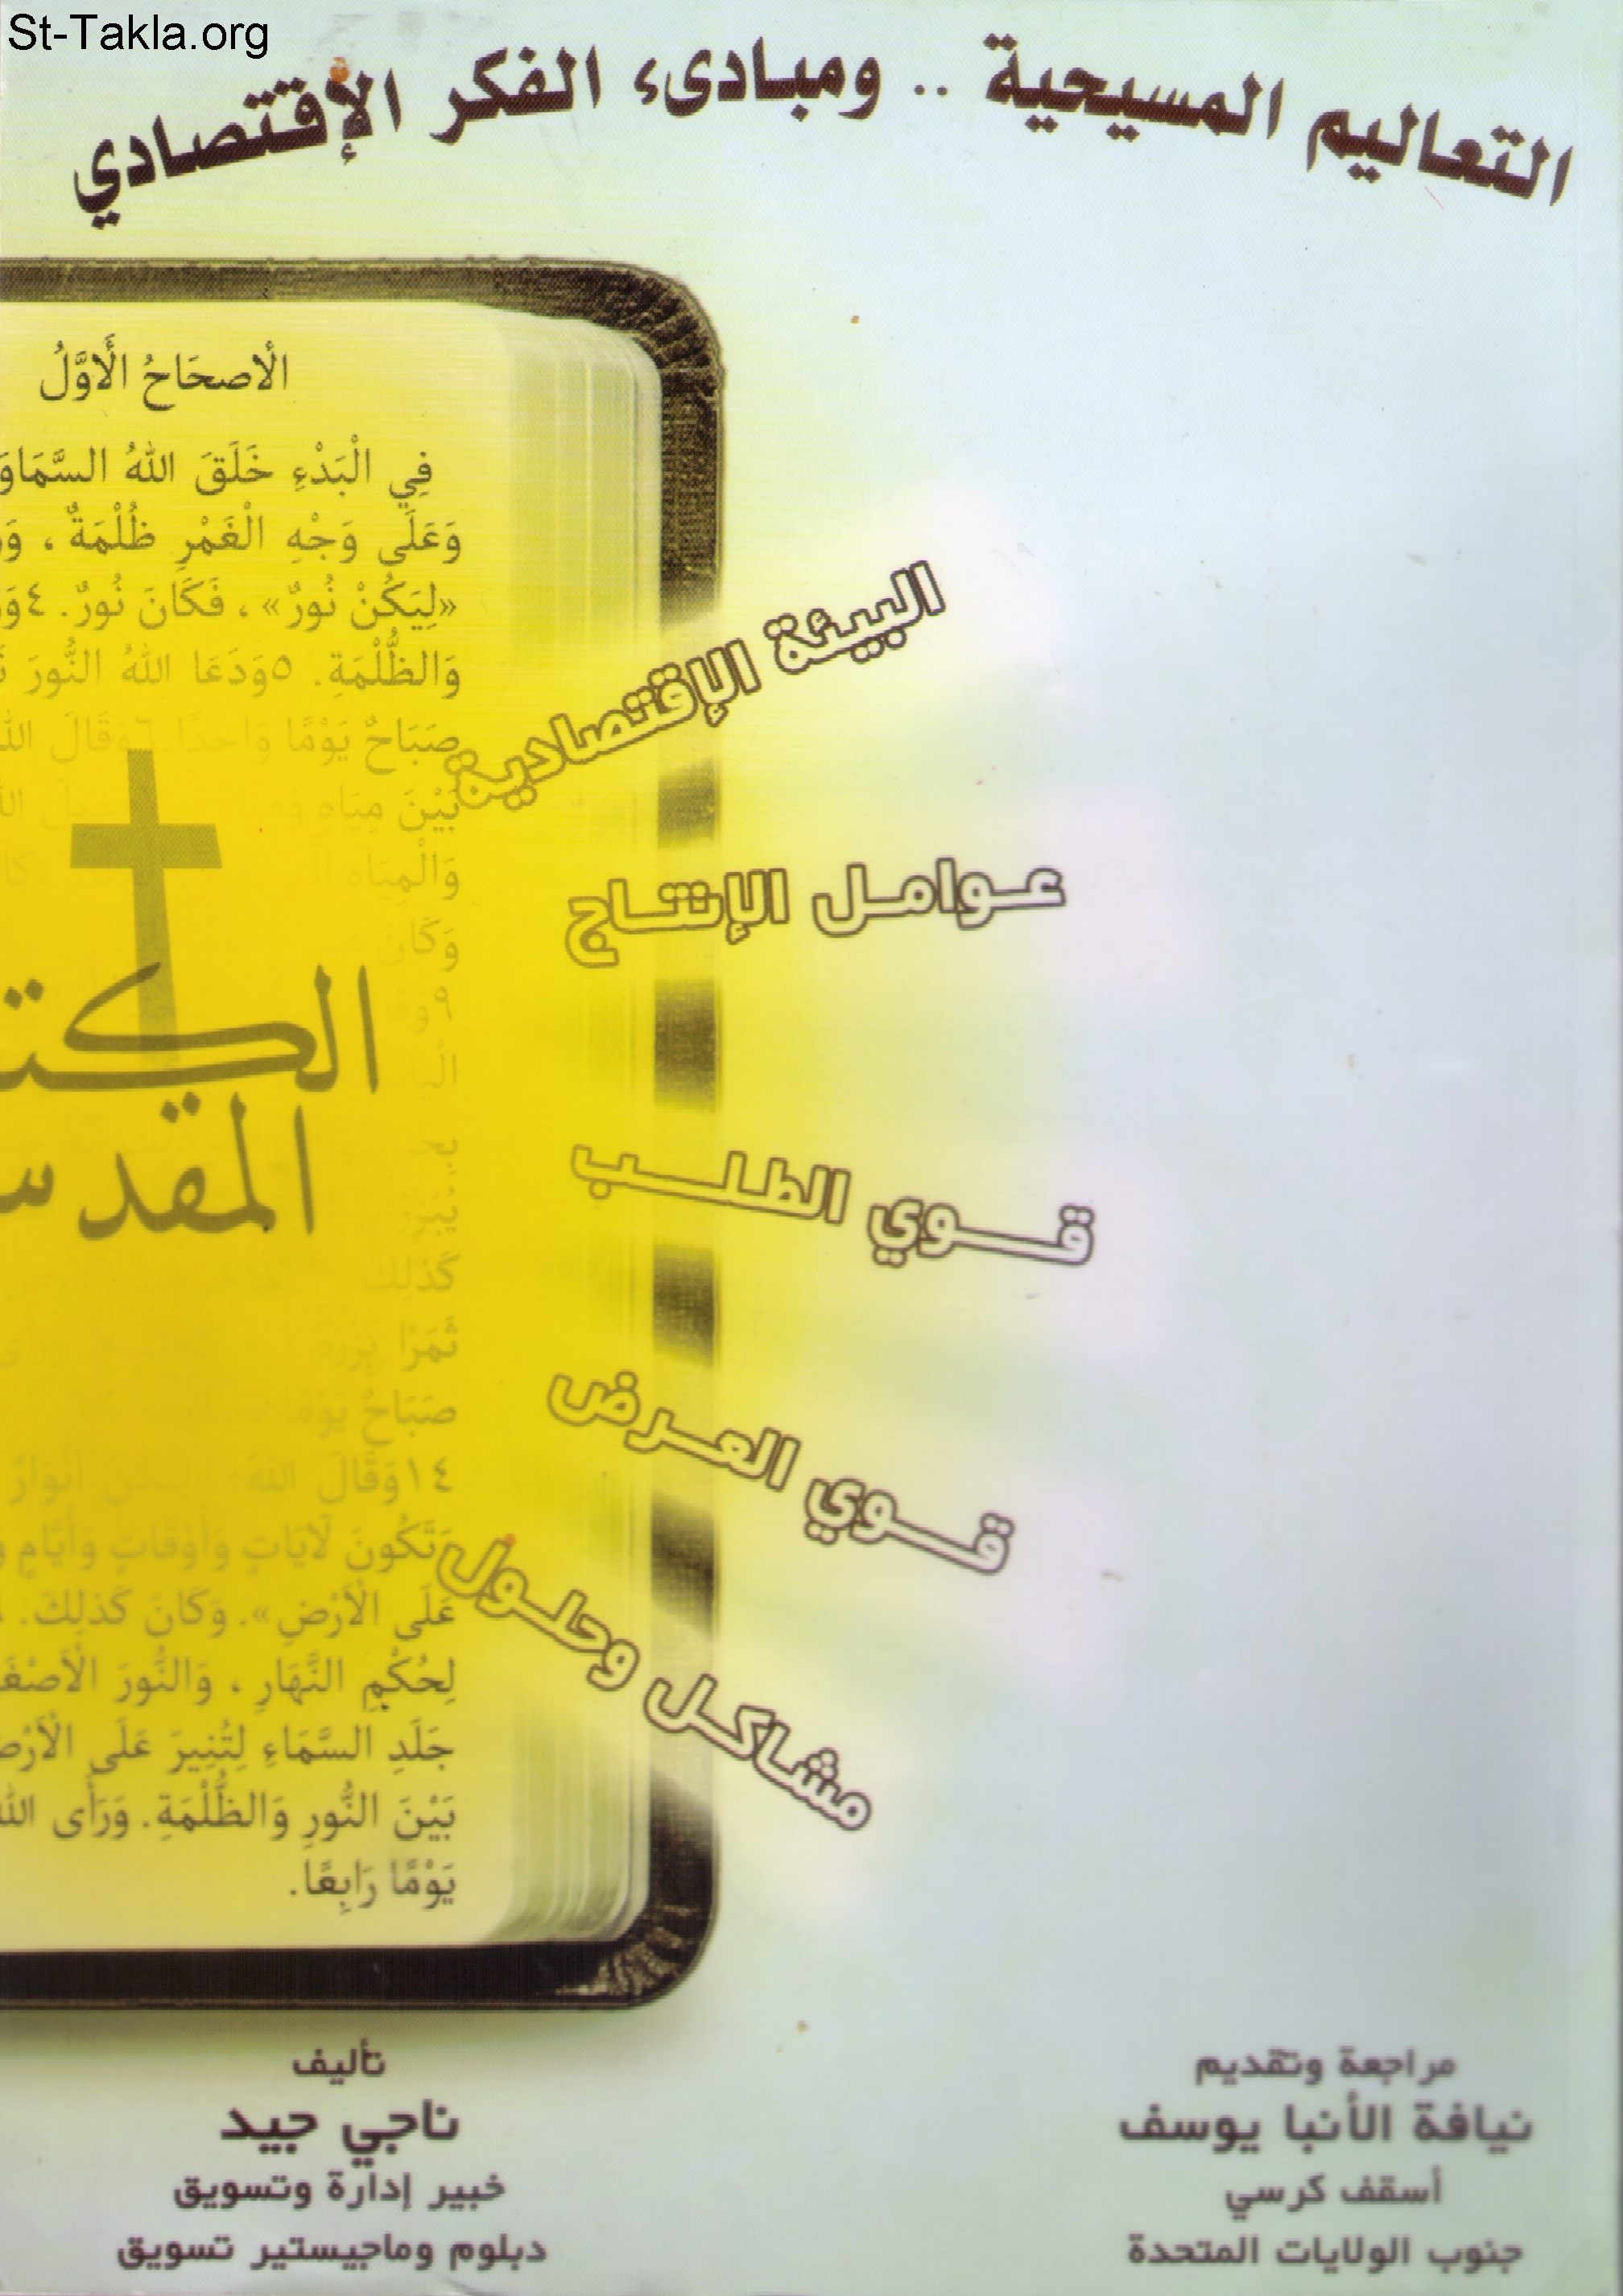 St-Takla.org
التعاليم المسيحية .. ومبادىء الفكر الإقتصادي
الْأصحَاحُ الْأَوَّلُ
فِي الْبَدْءِ خَلَقَ اللهُ السَّمَاوَ
وَعَلَى وَجْهِ الْغَمْرِ ظُلْمَةٌ ، وَر
«لِيَكُنْ نُورٌ» ، فَكَانَ نُورٌ. ٤وَ
وَالظُّلْمَةِ. ٥وَدَعَا اللهُ النُّورَ
صَبَاحٌ يَوْمًا وَاحدًا. ٦وَقَالَ الله
بَيْنَ مِيَاهٍ
وَالْمِيَاه
وَكَانَ
كَذلِكَ
ثَمَرًا بزره
صَبَاحٌ يَوْمًا
١٤وَقَالَ اللهُ: أَنْوَارٌ
وَتَكُونَ لآيَاتٍ وَأَوْقَاتٍ وَأَيَّامٍ وَ
عَلَى الْأَرْضِ». وَكَانَ كَذلِكَ.
لِحُكْمِ النَّهَارِ ، وَالنُّورَ الْأَصْغَ
جَلَدِ السَّمَاءِ لِتُنِيرَ عَلَى الْأَرْض
بَيْنَ النُّورِ وَالظُّلْمَةِ. وَرَأَى الله
يَوْمًا رَابِعًا.
الكتـ
المقدسـ
البيئة الإقتصادية
عوامل الإنتاج
قوي الطلب
قوي العرض
مشاكل وحلول
مراجعة وتقديم
نيافة الأنبا يوسف
أسقف كرسي
جنوب الولايات المتحدة
تأليف
ناجي جيد
خبير إدارة وتسويق
دبلوم وماجيستير تسويق